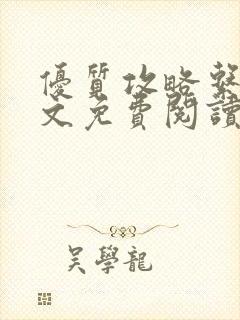 優質攻略系
文免費閱讀
吳學龍